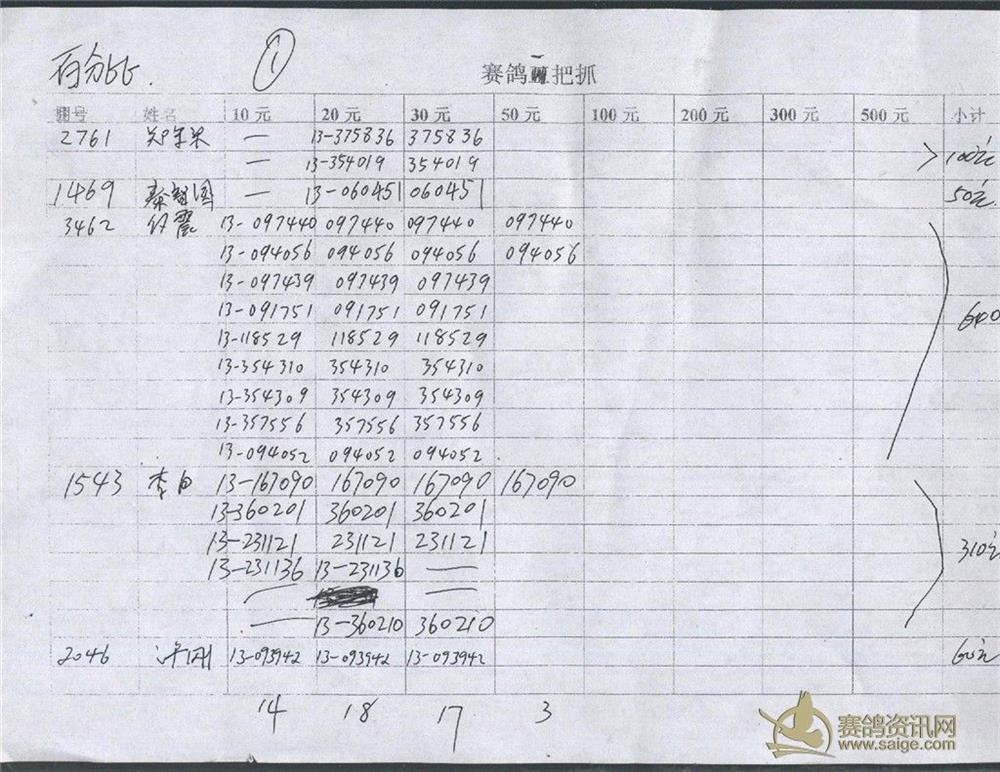 百分比.
①
赛鸽 把抓
翻号 姓名 10元 20元 30元 50元 100元 200元 300元 500元 小计
2761 — 13-375836 375836
— 13-354019 354019 100元
1469 秦 国 — 13-060451 060451 50元
3462 震 13-097440 097440 097440 097440
13-094056 094056 094056 094056
13-097439 097439 097439
13-091751 091751 091751 640
13-118529 118529 118529
13-354310 354310 354310
13-354309 354309 354309
13-357556 357556 357556
13-094052 094052 094052
1543 李白 13-167090 167090 167090 167090
13-360201 360201 360201
13-231121 231121 231121 310元
13-231136 13-231136 —
— —
— 13-360210 360210
2046 许刚 13-093942 13-093942 13-093942 60元
14 18 17 3
赛鸽资讯网
www.saige.com